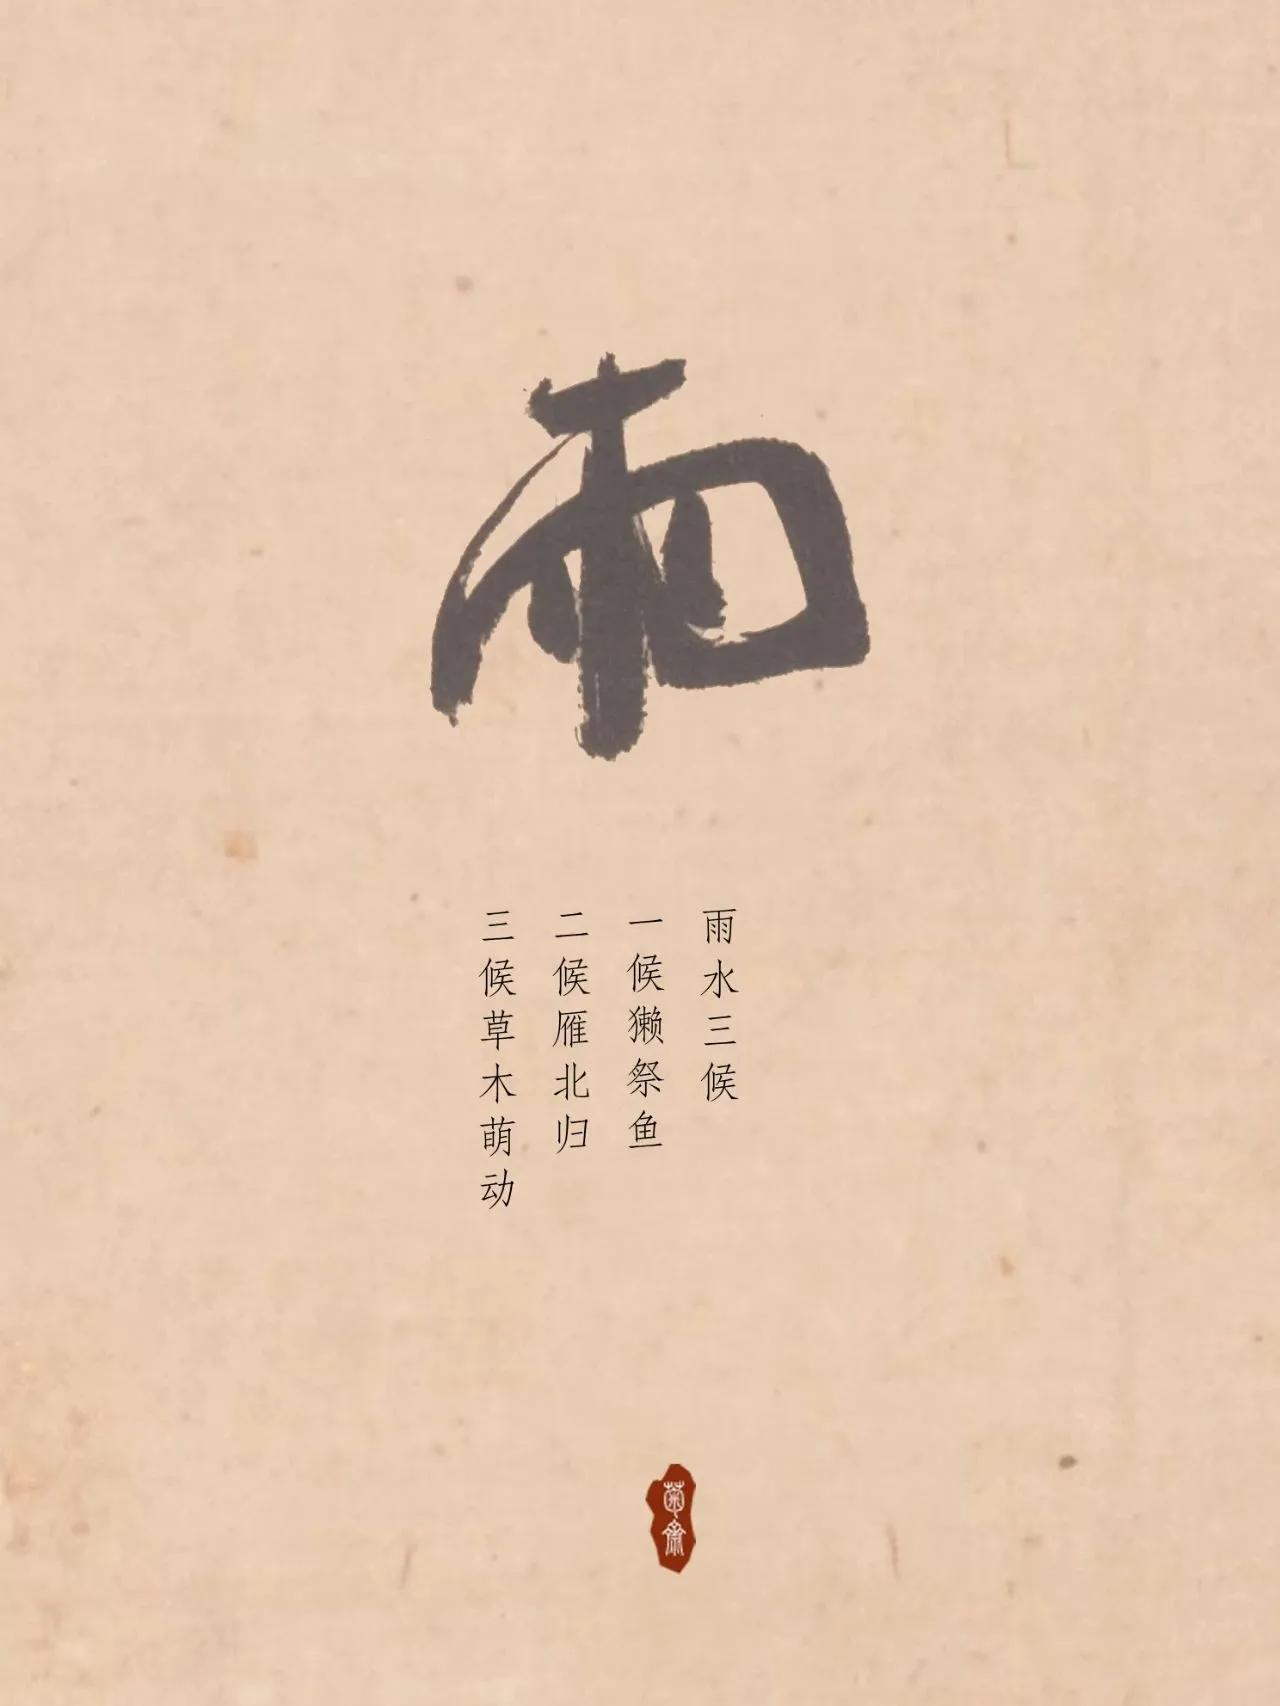 雨
雨水三候
一候獭祭鱼
二候雁北归
三候草木萌动